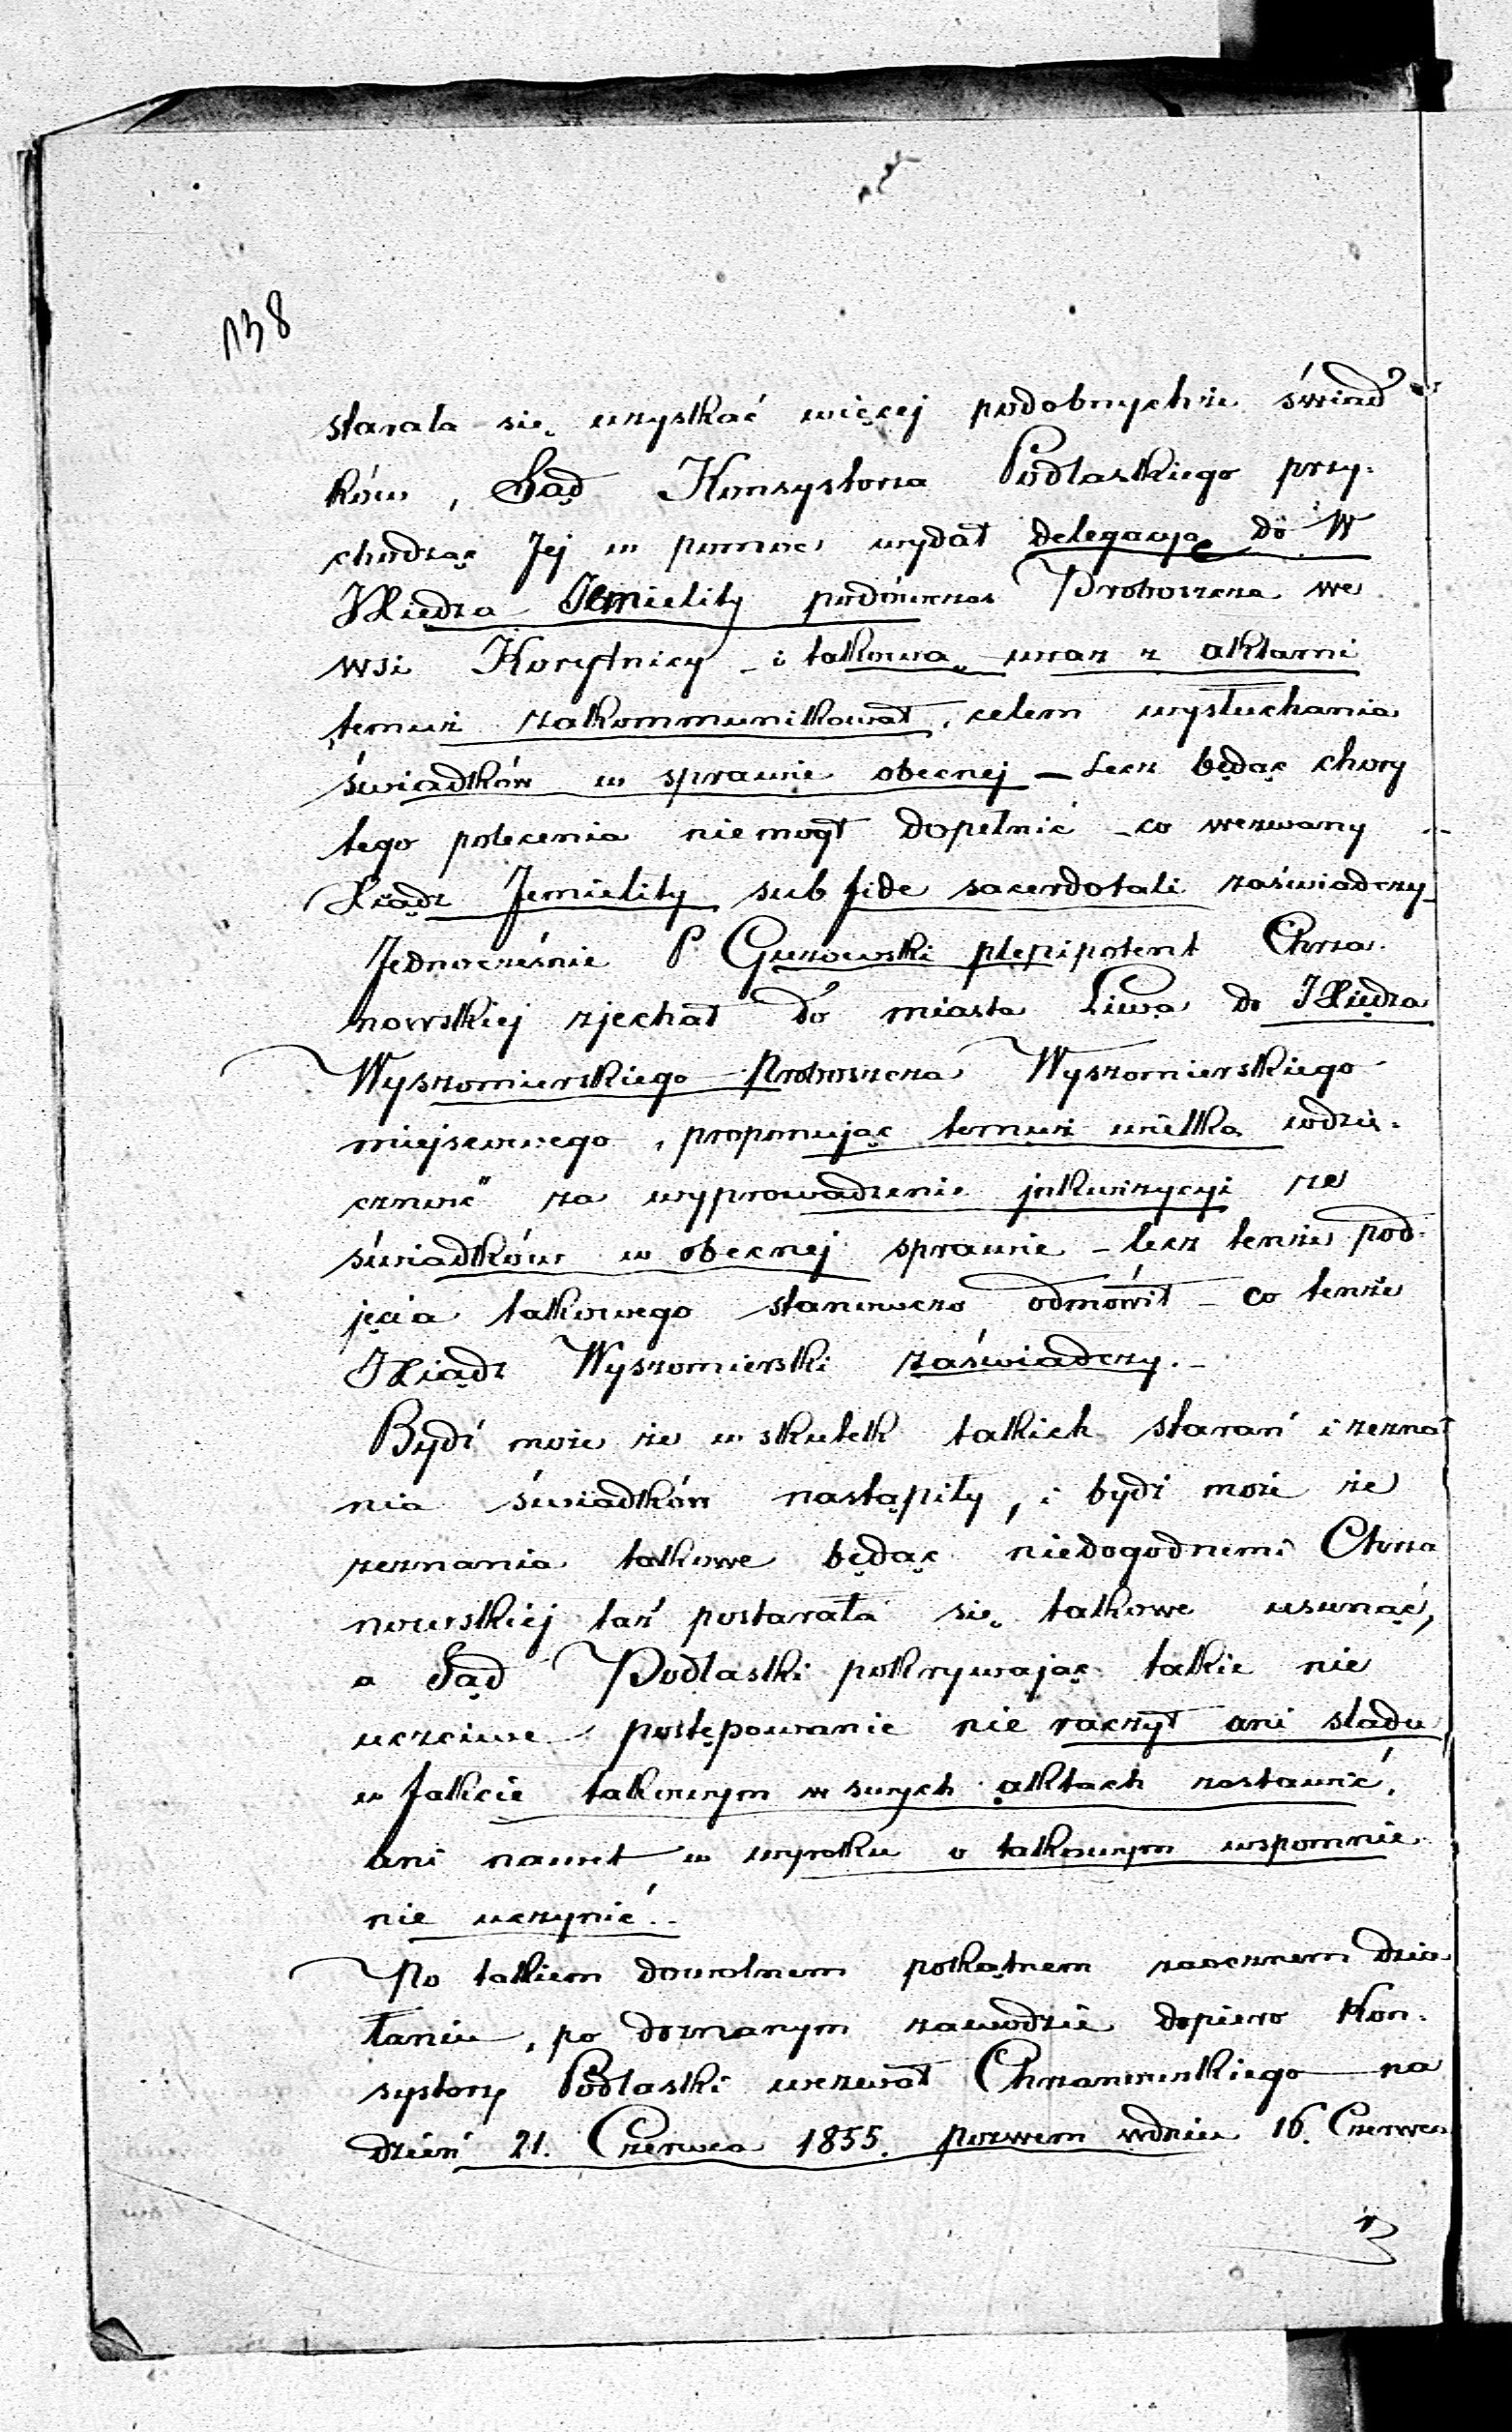 138
starała się uzyskać więcej podobnychże świad
ków, Sąd Konsystorza Podlaskiego przy-
chodząc Jej w pomoc, wydał delegacyę do W
JXiedza Jemielity podówczas Proboszcza we
wsi Korytnicy - i takową wraz z aktami
temuż zakommunikował, celem wysłuchania
świadków w sprawie obecnej - Lecz będąc chory
tego polecenia niemógł dopełnić - co wezwany
Xiądz Jemielity sub fide sacerdotali zaświadczy -
Jednocześnie P Guzowski plenipotent Chrza-
nowskiej zjechał do miasta Liwa do JXiędza
Wyszomierskiego Proboszcza Wyszomierskiego
miejscowego, proponując temuż wielką wdzię-
czność za wyprowadzenie inkwizycyi ze
świadków w obecnej sprawie - lecz tenże pod-
jęcia takowego stanowczo odmówił - co tenże
JXiądz Wyszomierski zaświadczy. -
Bydź może że w skutek takich starań i zezna
nia świadków nastąpiły, i bydź może że
zeznania takowe będąc niedogodnemi Chrza
nowskiej taż postarała się takowe usunąć,
a Sąd Podlaski pokrywając takie nie
uczciwe postępowanie nie raczył ani sladu
w fakcie takowym w swych aktach zostawić,
ani nawet w wyroku o takowym wspomnie
nie uczynić. -
Po takiem dowolnem pokątnem zaocznem dzia
łaniu, po doznanym zawodzie dopiero Kon-
systorz Podlaski wezwał Chrzanowskiego na
dzień 21. Czerwca 1855. pozwem w dniu 16. Czerwca